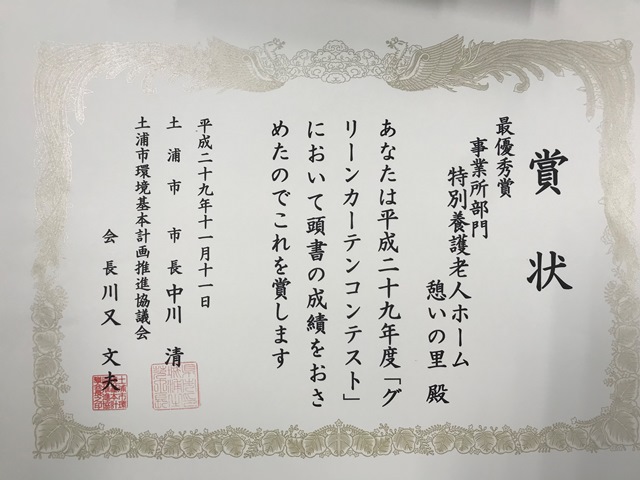 賞状
最優秀賞
事業所部門
特別養護老人ホーム
憩いの里 殿
あなたは平成二十九年度「グ
リーンカーテンコンテスト」
において頭書の成績をおさ
めたのでこれを賞します
平成二十九年十一月十一日
土浦市市長 中川 清
土浦市環境基本計画推進協議会
会長 川又 文夫